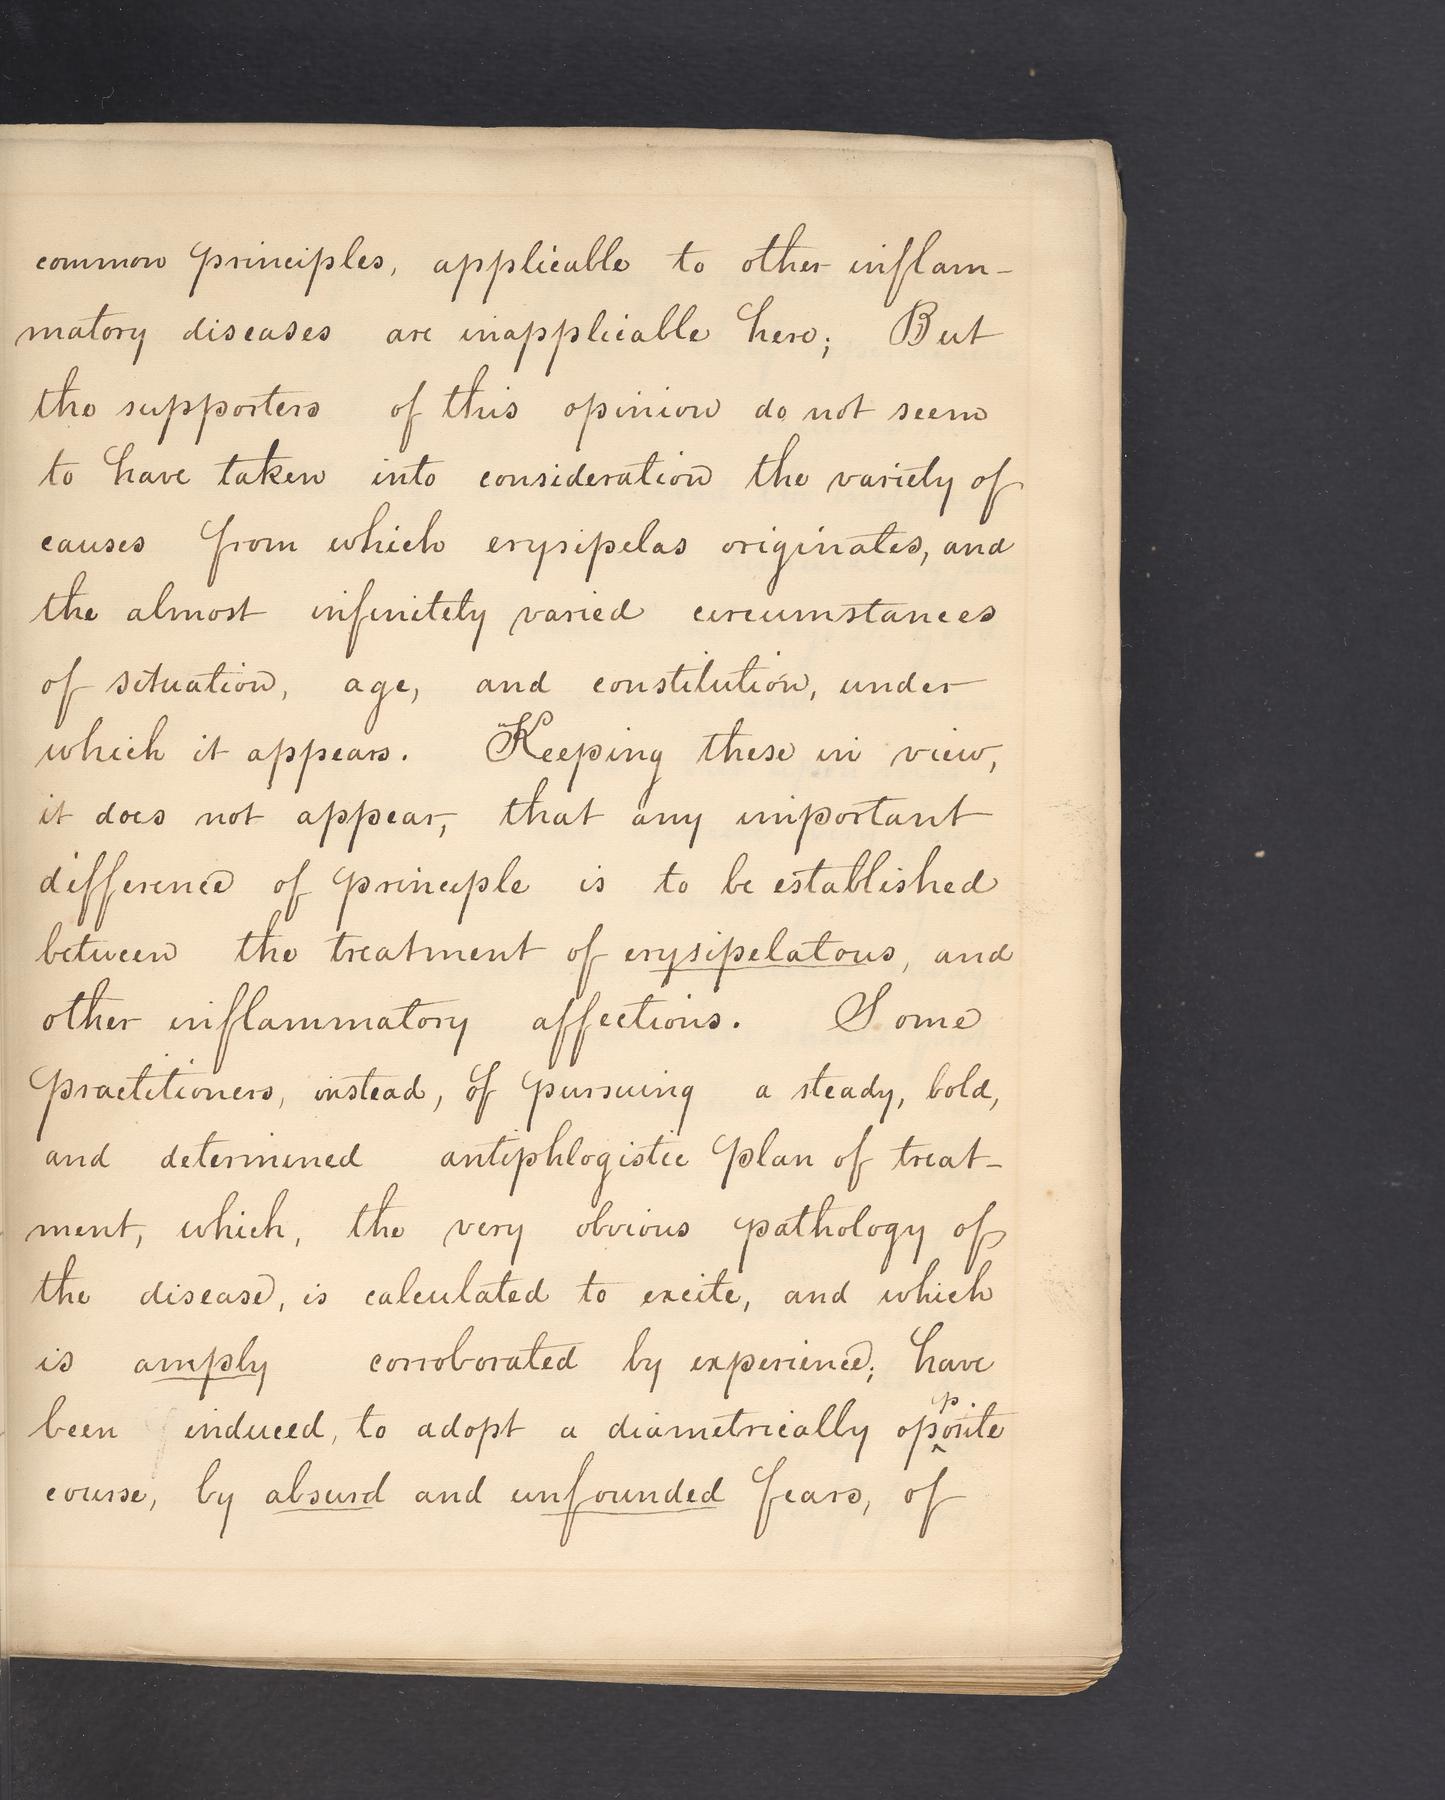 common principles, applicable to other inflam-
matory diseases are inapplicable here; But
the supporters of this opinion do not seem
to have taken into consideration the variety of
causes from which erysipelas originates, and
the almost infinitely varied circumstances
of situation, age, and constitution, under
which it appears. Keeping these in view,
it does not appear, that any important
difference of principle is to be established
between the treatment of erysipelatous, and
other inflammatory affections. Some
practitioners, instead, of pursuing a steady, bold,
and determined antiphlogistic plan of treat-
ment, which, the very obvious pathology of
the disease, is calculated to excite, and which
is amply corroborated by experience; have
been induced, to adopt a diametrically opposite
course, by absurd and unfounded fears, of